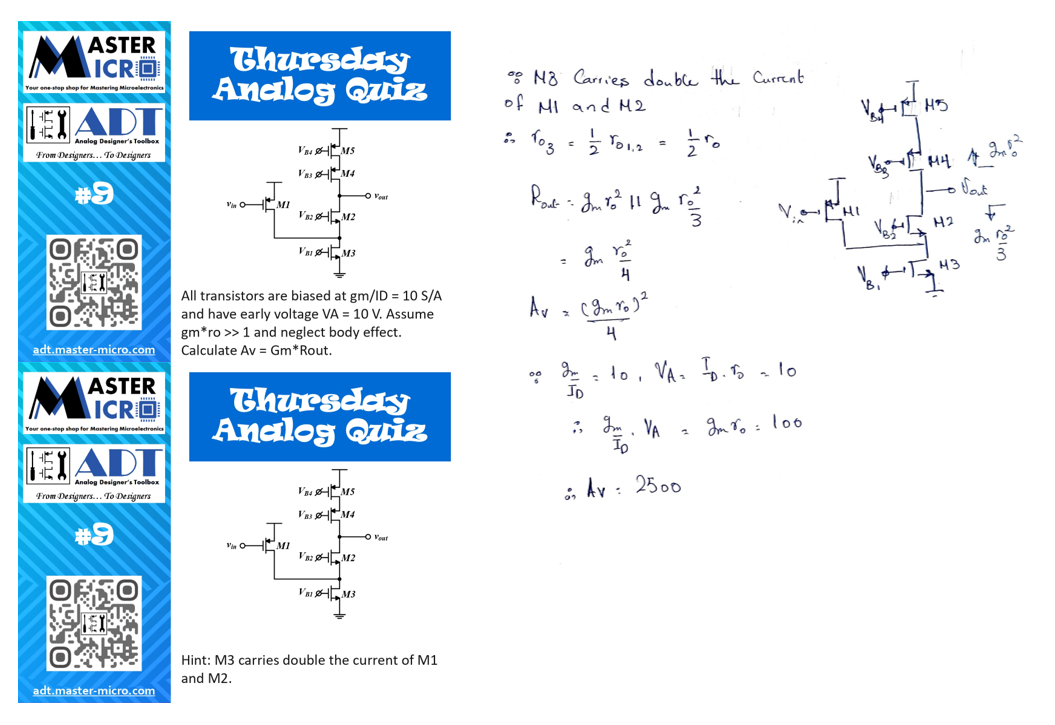 MASTER
MICRO
Your one-stop shop for Mastering Microelectronics
ADT
Analog Designer's Toolbox
From Designers… To Designers
#9
adt.master-micro.com
Thursday
Analog Quiz
VB4
M5
VB3
M4
vin
M1
vout
VB2
M2
VB1
M3
All transistors are biased at gm/ID = 10 S/A
and have early voltage VA = 10 V. Assume
gm*ro >> 1 and neglect body effect.
Calculate Av = Gm*Rout.
MASTER
MICRO
Your one-stop shop for Mastering Microelectronics
ADT
Analog Designer's Toolbox
From Designers… To Designers
#9
adt.master-micro.com
Thursday
Analog Quiz
VB4
M5
VB3
M4
vin
M1
vout
VB2
M2
VB1
M3
Hint: M3 carries double the current of M1
and M2.
∵ M3 Carries double the Current
of M1 and M2
∴ ro3 = 1/2 ro1,2 = 1/2 ro
Rout = gm ro² || gm ro²/3
= gm ro²/4
Av = (gm ro)²/4
∵ gm/ID = 10 , VA = ID . ro = 10
∴ gm/ID . VA = gm ro = 100
∴ Av = 2500
VB4
M5
VB3
M4
gm ro²
Vout
Vin
M1
VB2
M2
gm ro²/3
VB1
M3